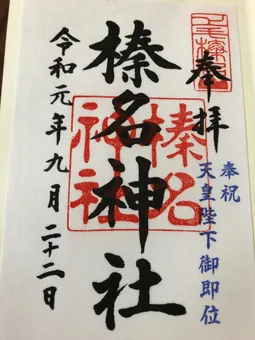 奉拝
奉祝
天皇陛下御即位
榛名神社
榛名神社
令和元年九月二十二日